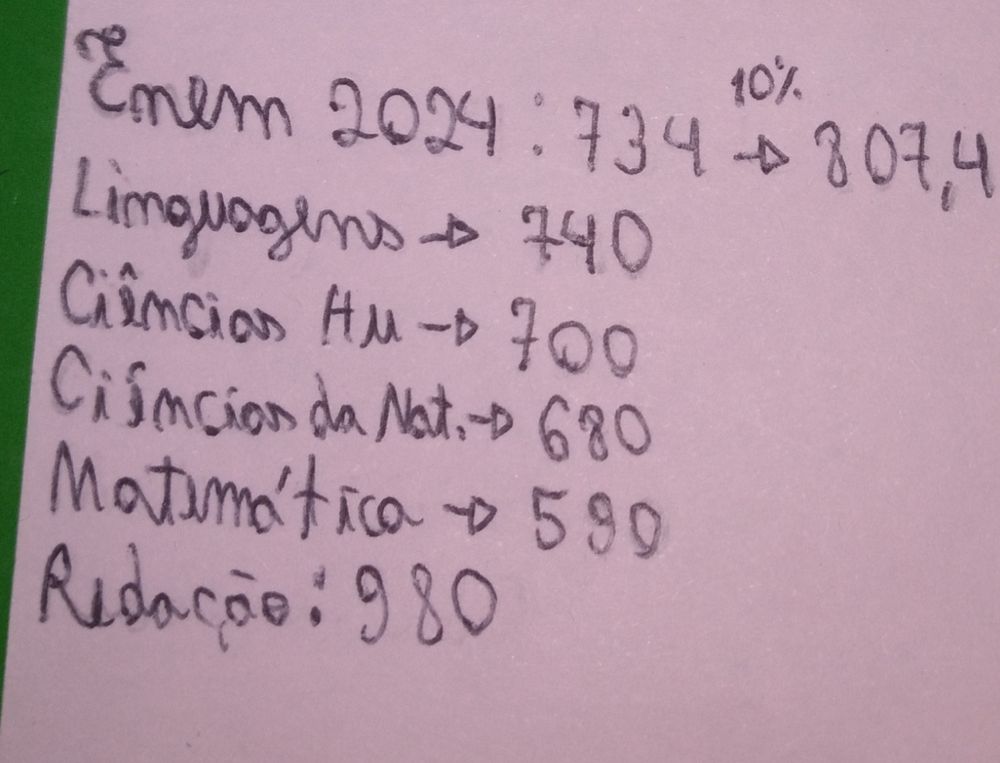 10%
Enem 2024: 734 → 807,4
Linguagens → 740
Ciências Hu → 700
Ciências da Nat. → 680
Matemática → 590
Redação: 980